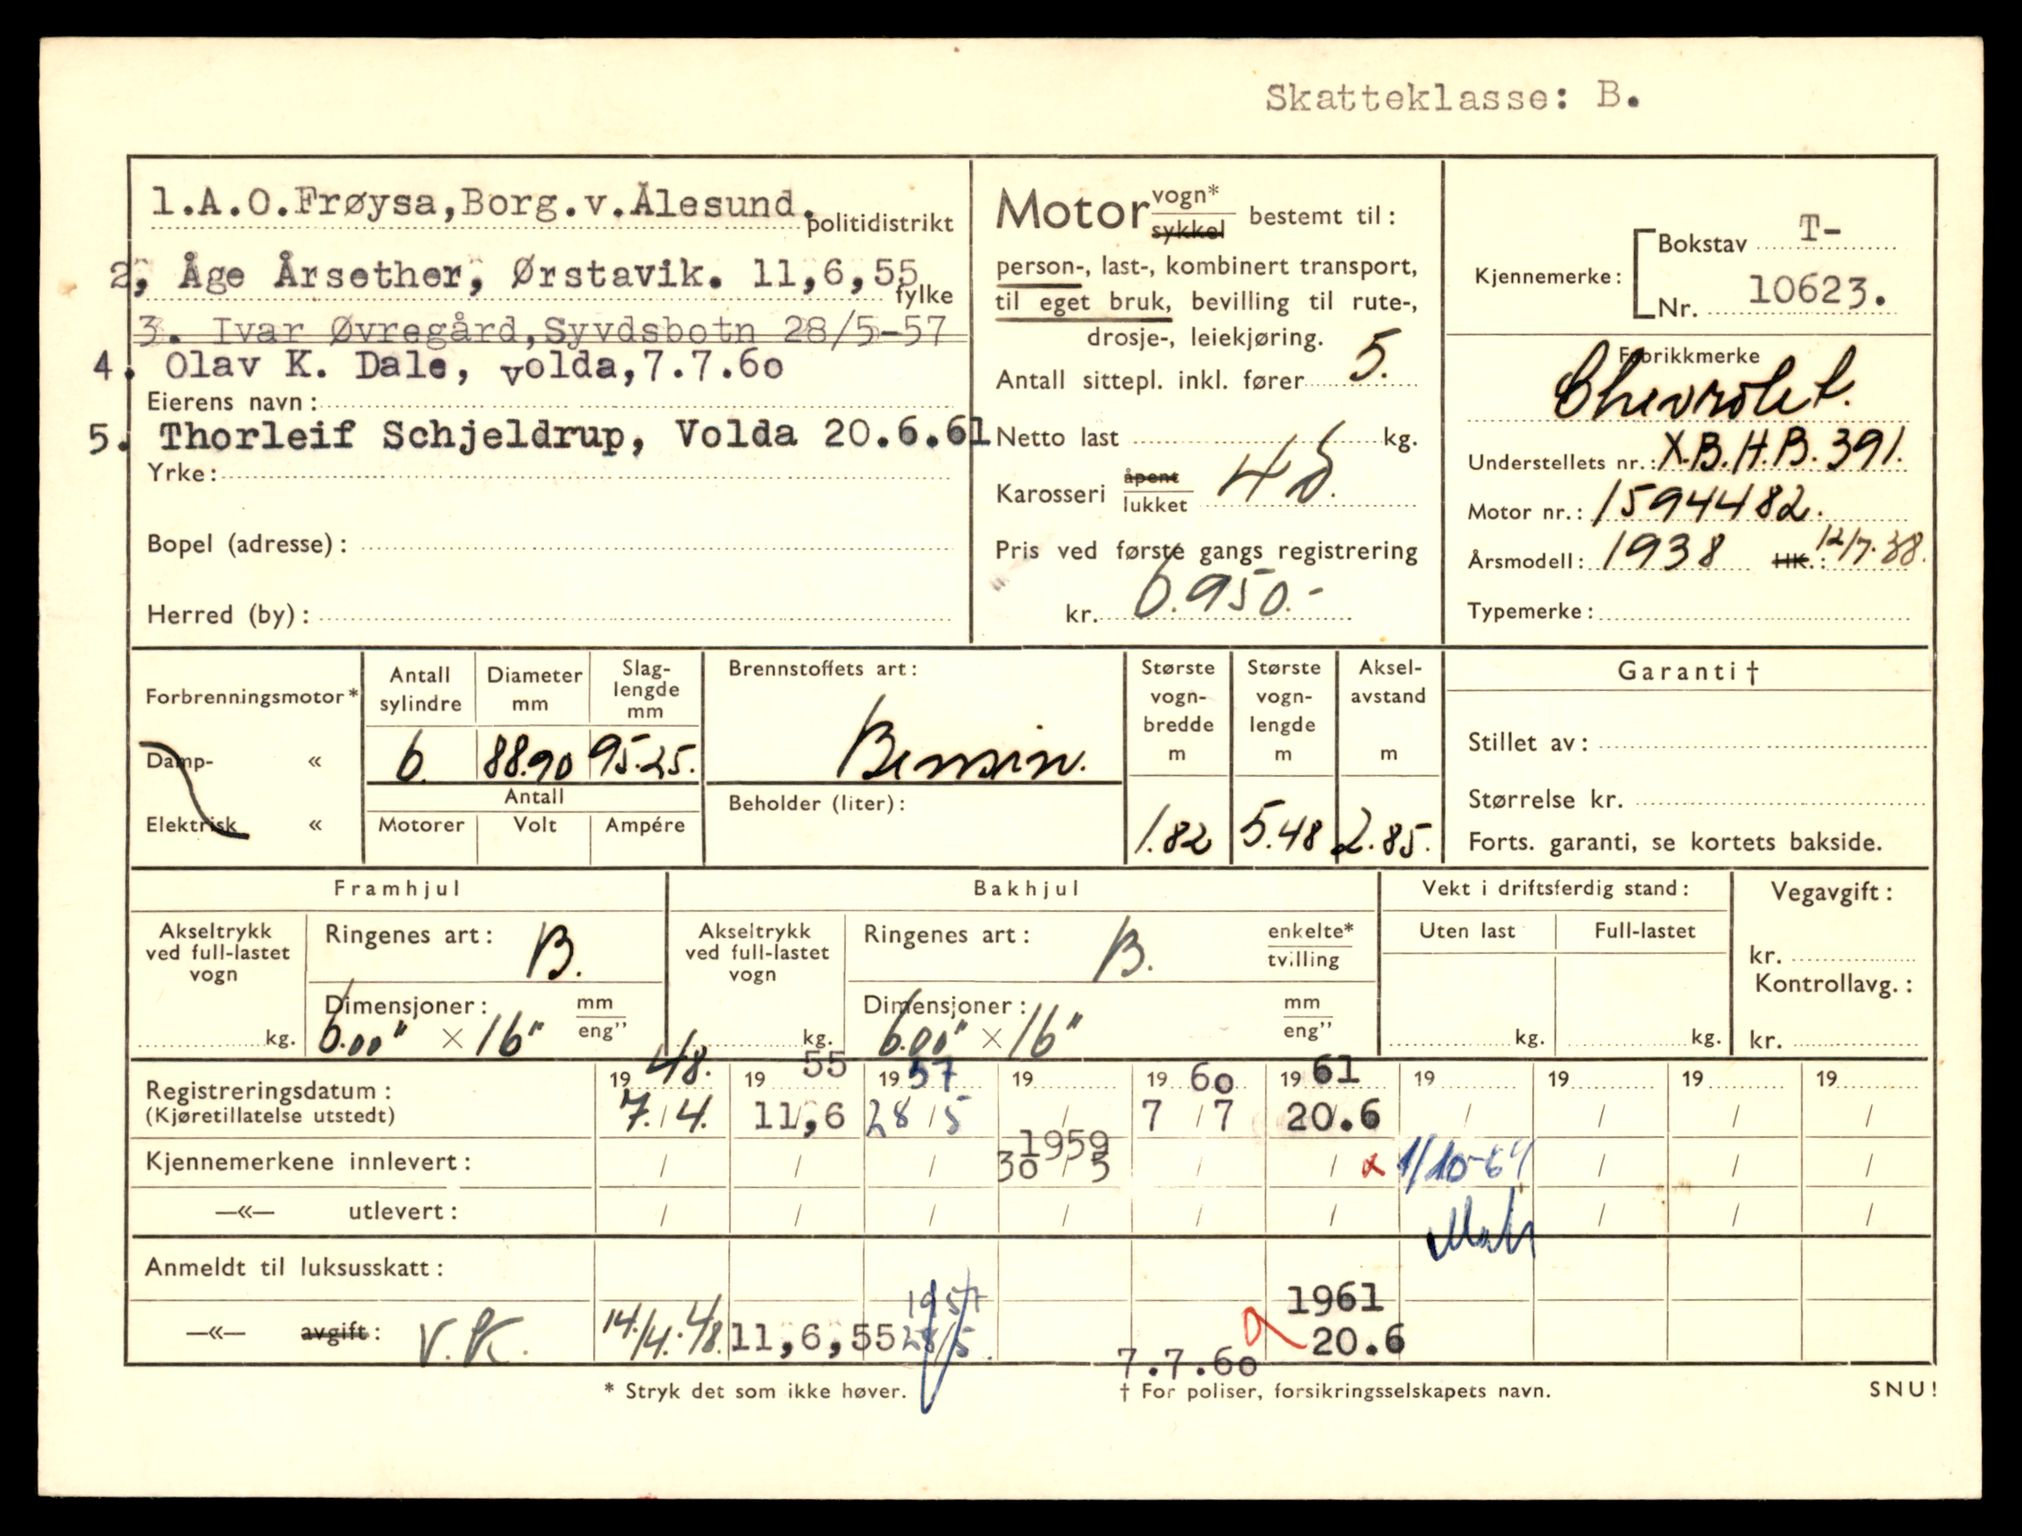 Skatteklasse: B.
1.A.O.Frøysa,Borg.v.Ålesund. politidistrikt
2, Åge Årsether, Ørstavik. 11,6,55 fylke
3. Ivar Øvregård,Syvdsbotn 28/5-57
4. Olav K. Dale, volda,7.7.60
Eierens navn:
5. Thorleif Schjeldrup, Volda 20.6.61
Yrke:
Bopel (adresse):
Herred (by):
Motor vogn* sykkel bestemt til:
person-, last-, kombinert transport,
til eget bruk, bevilling til rute-,
drosje-, leiekjøring.
Antall sittepl. inkl. fører 5.
Netto last kg.
Karosseri åpent lukket 4 d.
Pris ved første gangs registrering
kr. 6.950.-
Kjennemerke: Bokstav T-
Nr. 10623.
Fabrikkmerke
Chevrolet.
Understellets nr.: X.B.H.B.391.
Motor nr.: 1594482.
Årsmodell: 1938 HK.: 12/7.38.
Typemerke:
Forbrenningsmotor*
Damp- «
Elektrisk «
Antall sylindre
6.
Diameter mm
88.90
Slag-
lengde
mm
95.25.
Antall
Motorer Volt Ampére
Brennstoffets art:
Bensin.
Beholder (liter):
Største
vogn-
bredde
m
1.82
Største
vogn-
lengde
m
5.48
Aksel-
avstand
m
2.85.
Garanti †
Stillet av:
Størrelse kr.
Forts. garanti, se kortets bakside.
Framhjul
Akseltrykk
ved full-lastet
vogn
kg.
Ringenes art: B.
Dimensjoner: mm
6.00" × 16" eng"
Bakhjul
Akseltrykk
ved full-lastet
vogn
kg.
Ringenes art: B. enkelte*
tvilling
Dimensjoner: mm
6.00" × 16" eng"
Vekt i driftsferdig stand:
Uten last Full-lastet
kg. kg.
Vegavgift:
kr.
Kontrollavg.:
kr.
Registreringsdatum: 19 48. 19 55 19 57 19 19 60 19 61 19 19 19 19
(Kjøretillatelse utstedt) 7./4. 11,6 28/5 / 7/7 20.6 / / / /
1959
Kjennemerkene innlevert: / / / 30/5 / / 1/10-64 / / /
—«— utlevert: / / / / / / / / /
Anmeldt til luksusskatt:
1957 1961
—«— avgift: V.K. 14./4.48. 11,6,55 28/5. 20.6
7.7.60
* Stryk det som ikke høver.
† For poliser, forsikringsselskapets navn.
SNU!